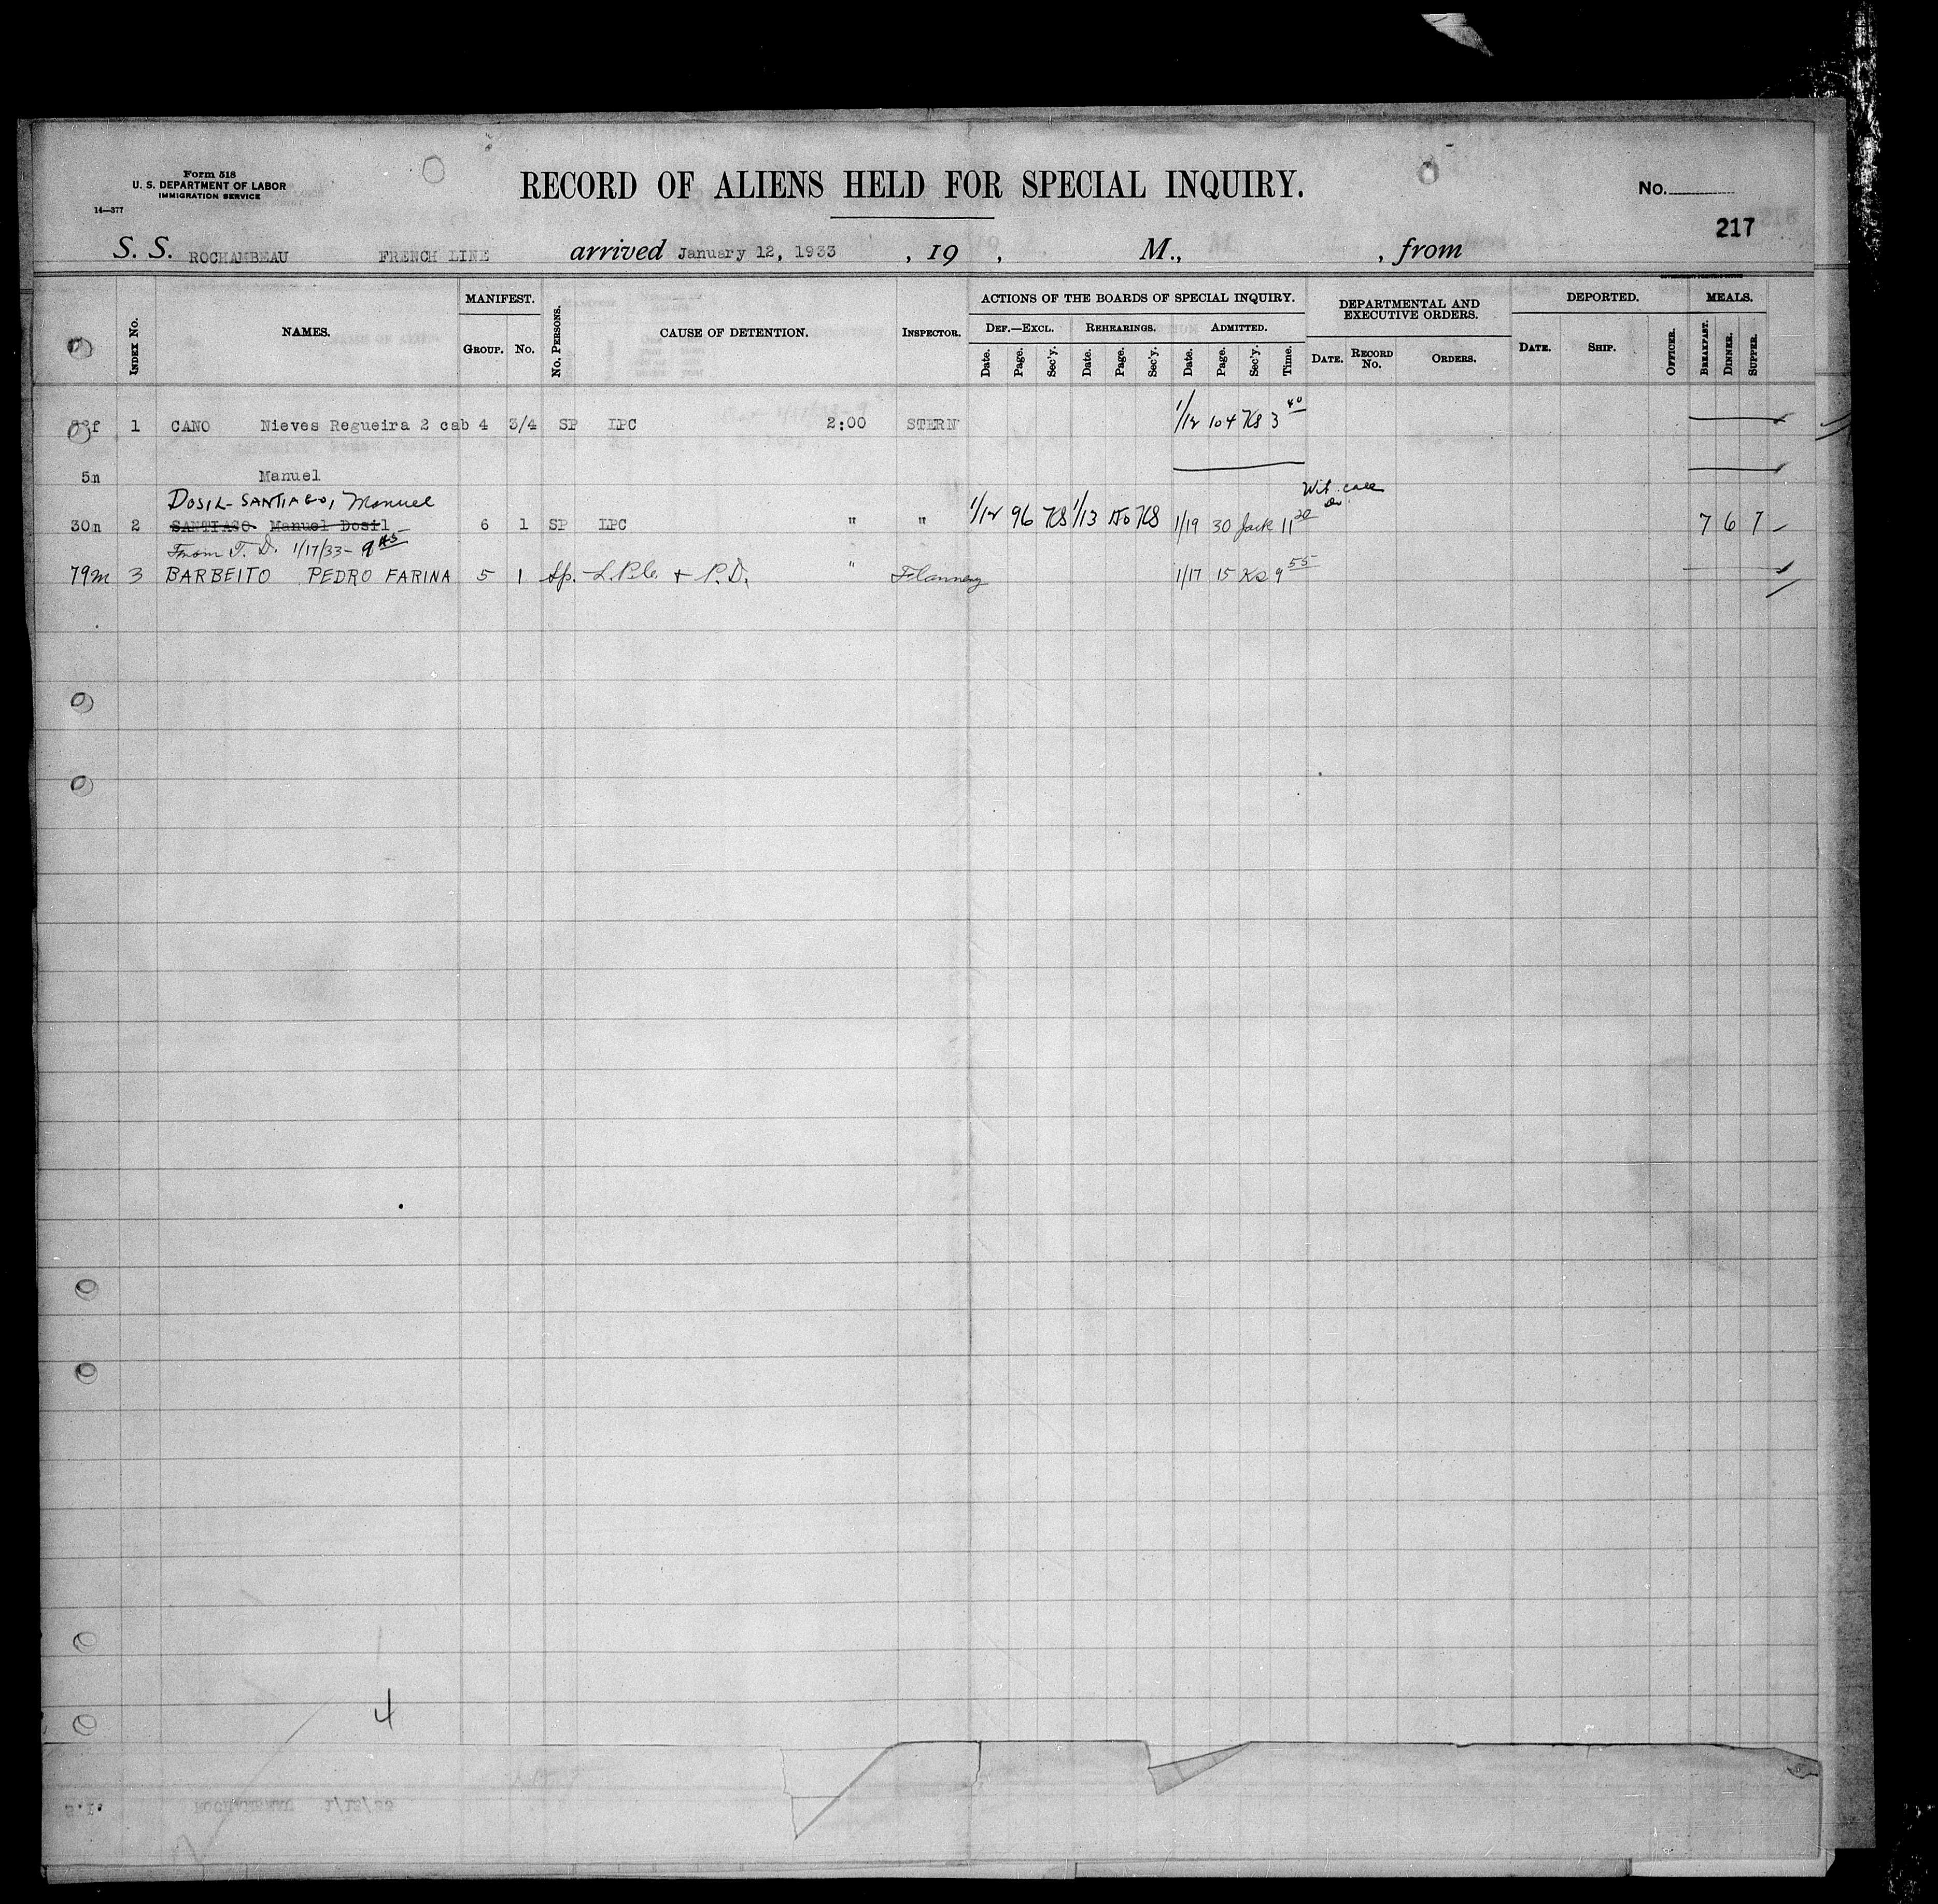 Form 518
U. S. DEPARTMENT OF LABOR
IMMIGRATION SERVICE
14—377
RECORD OF ALIENS HELD FOR SPECIAL INQUIRY.
No.
217
S. S. ROCHAMBEAU FRENCH LINE arrived January 12, 1933 , 19 , M., , from
INDEX NO. NAMES. MANIFEST. GROUP. NO. NO. PERSONS. CAUSE OF DETENTION. INSPECTOR.
ACTIONS OF THE BOARDS OF SPECIAL INQUIRY.
DEF.—EXCL. REHEARINGS. ADMITTED.
Date. Page. Sec'y. Date. Page. Sec'y. Date. Page. Sec'y. Time.
DEPARTMENTAL AND EXECUTIVE ORDERS.
DATE. RECORD NO. ORDERS.
DEPORTED.
DATE. SHIP. OFFICER.
MEALS.
BREAKFAST. DINNER. SUPPER.
f 1 CANO Nieves Regueira 2 cab 4 3/4 SP LPC 2:00 STERN 1/12 104 KS 3 40
5m Manuel
DOSIL-SANTIAGO, Manuel
30m 2 SANTIAGO Manuel Dosil 6 1 SP LPC " " 1/12 96 KS 1/13 150 KS 1/19 30 Jack 11 20 7 6 7
From T. D. 1/17/33 - 9 45
79m 3 BARBEITO PEDRO FARINA 5 1 Sp. L.P.C. + P.D. " Flannery 1/17 15 KS 9 55
4
S.I. ROCHAMBEAU 1/12/33